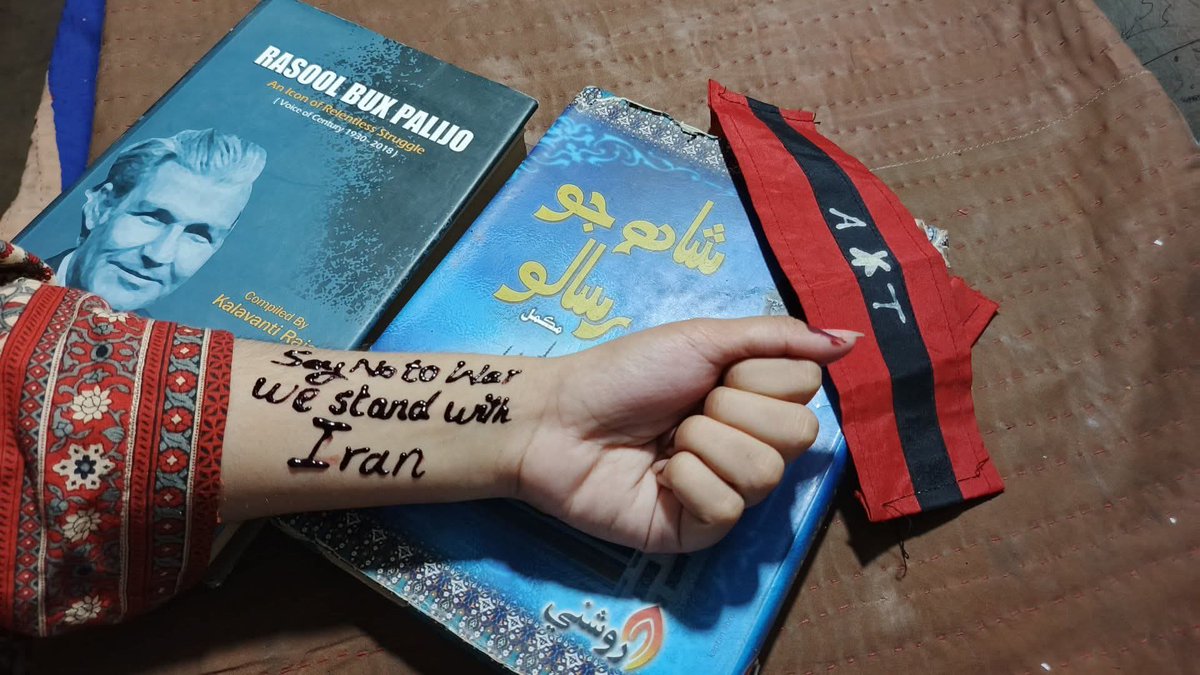 RASOOL BUX PALIJO
An Icon of Relentless Struggle
( Voice of Century 1930- 2018 )
Compiled By
Kalavanti
شاھ جو
رسالو
مڪمل
A * T
Say No to War
we stand with
Iran
روشني